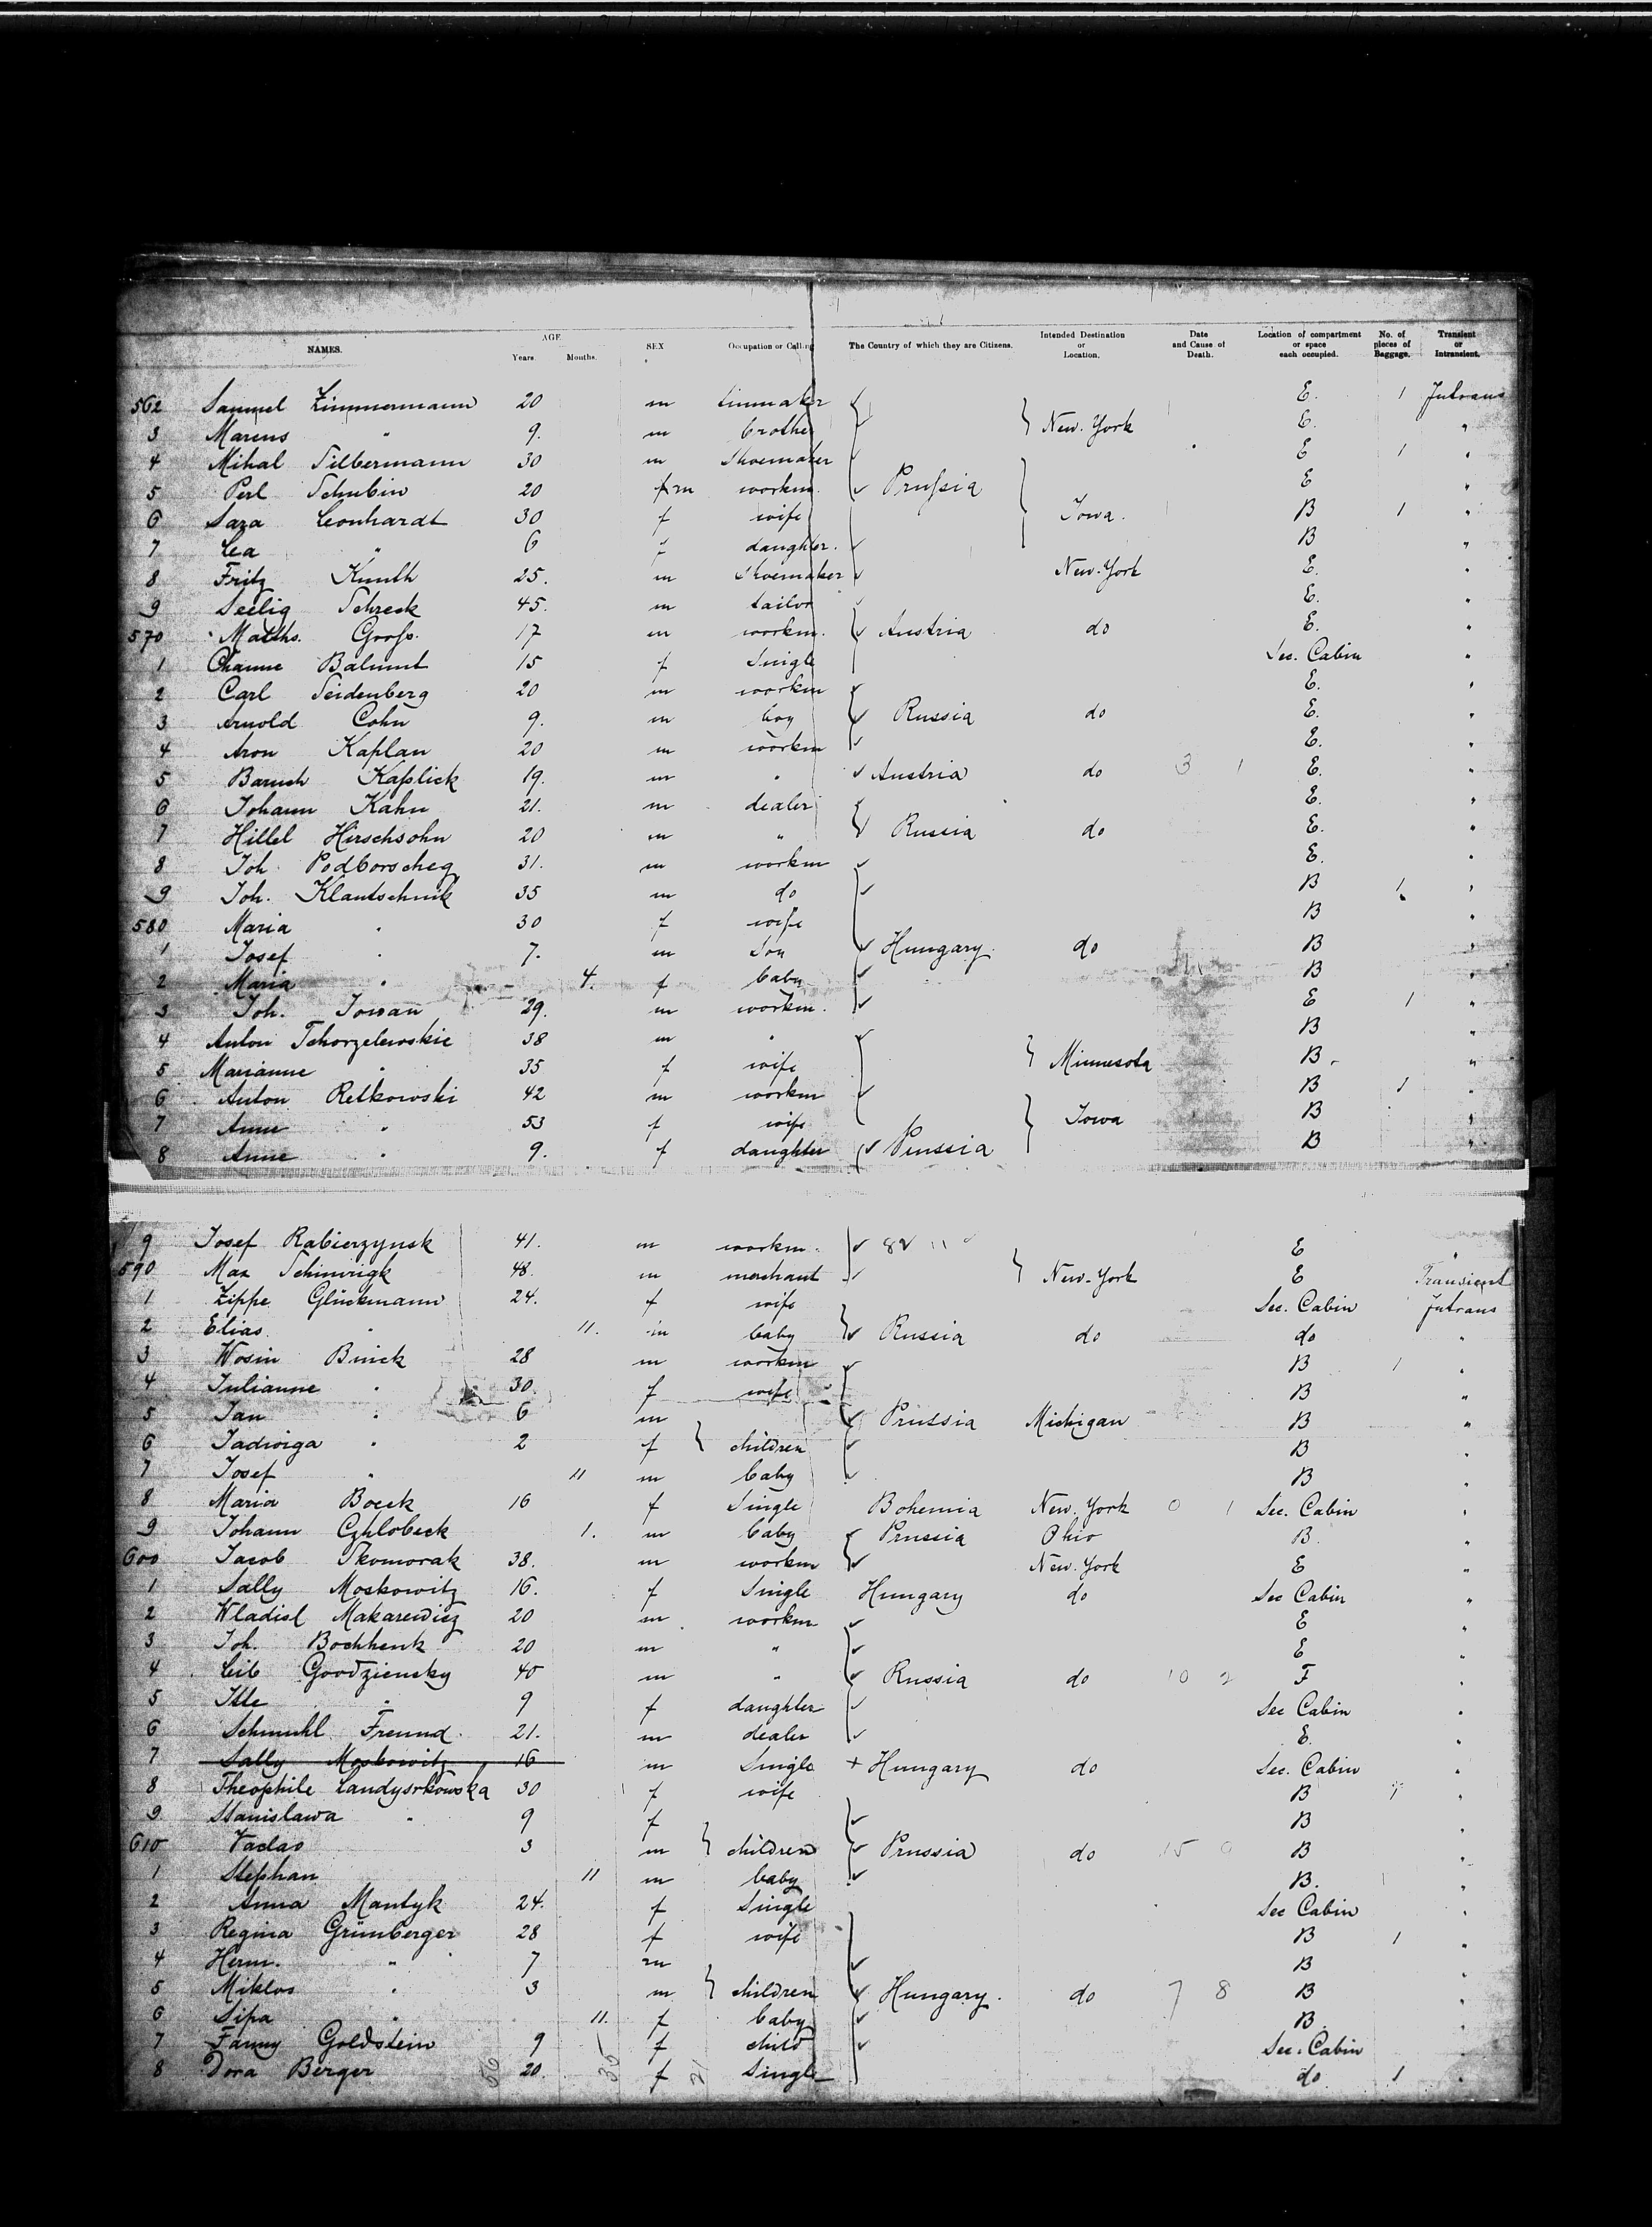 NAMES. AGE Years. Months. SEX Occupation or Calling The Country of which they are Citizens. Intended Destination or Location. Date and Cause of Death. Location of compartment or space each occupied. No. of pieces of Baggage. Transient or Intransient.
562 Samuel Zimmermann 20 m E. 1 Intrans
3 Marcus " 9. m brother New-York E. "
4 Mihal Silbermann 30 m Shoemaker E 1 "
5 Perl Schubin 20 m workm. Prussia E "
6 Sara Leonhardt 30 f wife Iowa. B 1 "
7 Lea " 6 f daughter. B "
8 Fritz Kunth 25. m Shoemaker New-York E. "
9 Seelig Schreck 45. m tailor E. "
570 Matths. Gross. 17 m workm. Austria do E. "
1 Channe Balmut 15 f Single Sec. Cabin "
2 Carl Seidenberg 20 m workm E. "
3 Arnold Cohn 9. m boy Russia do E. "
4 Aron Kaplan 20 m workm E. "
5 Baruch Kaplick 19. m " Austria do 3 1 E. "
6 Johann Kahn 21. m dealer E. "
7 Hillel Hirschsohn 20 m " Russia do E. "
8 Joh. Podborscheg 31. m workm E. "
9 Joh. Klantschnik 35 m do B 1 "
580 Maria " 30 f wife B "
1 Josef " 7. m Son Hungary. do B "
2 Maria " 4. f baby B "
3 Joh. Jowan 29. m workm. E 1 "
4 Anton Tchorzelewskie 38 m " B "
5 Marianne " 35 f wife Minnesota B "
6 Anton Retkowski 42 m workm B 1 "
7 Anne " 53 f wife Iowa B "
8 Anne " 9. f daughter Prussia B "
9 Josef Rabierzynsk 41. m workm. E "
590 Max Schimrigk 48. m merchant New-York E Transient
1 Zippe Glückmann 24. f wife Sec. Cabin Intrans
2 Elias " 11. m baby Russia do do "
3 Wosin Binick 28 m workm B 1 "
4 Julianne " 30. f wife B "
5 Jan " 6 m Prussia Michigan B "
6 Jadwiga " 2 f children B "
7 Josef " 11 m baby B "
8 Maria Boeck 16 f Single Bohemia New-York 0 1 Sec. Cabin "
9 Johann Czhlobeck 1. m baby Prussia Ohio B. "
600 Jacob Skomorak 38. m workm New-York E "
1 Sally Moskowitz 16. f Single Hungary do Sec Cabin "
2 Wladisl Makarewicz 20 m workm E "
3 Joh. Bochhenk 20 m " E "
4 Leib Goodziensky 40 m " Russia do 10 2 F "
5 Itte " 9 f daughter Sec Cabin "
6 Schmuhl Freund. 21. m dealer E. "
7 Sally Moskowitz 16 m Single + Hungary do Sec. Cabin "
8 Theophile Landysrkowska 30 f wife B "
9 Stanislawa " 9 f B "
610 Vaclav 3 m children Prussia do 15 0 B "
1 Stephan 11 m baby B. "
2 Anna Mantyk 24. f Single Sec Cabin "
3 Regina Grünberger 28 f wife B 1 "
4 Herm. " 7 m B "
5 Miklos " 3 m children Hungary. do 7 8 B "
6 Sipa " 11. f baby B. "
7 Fanny Goldstein 9 f child Sec. Cabin "
8 Dora Berger 56 20. 35 f 21 Single do 1 "